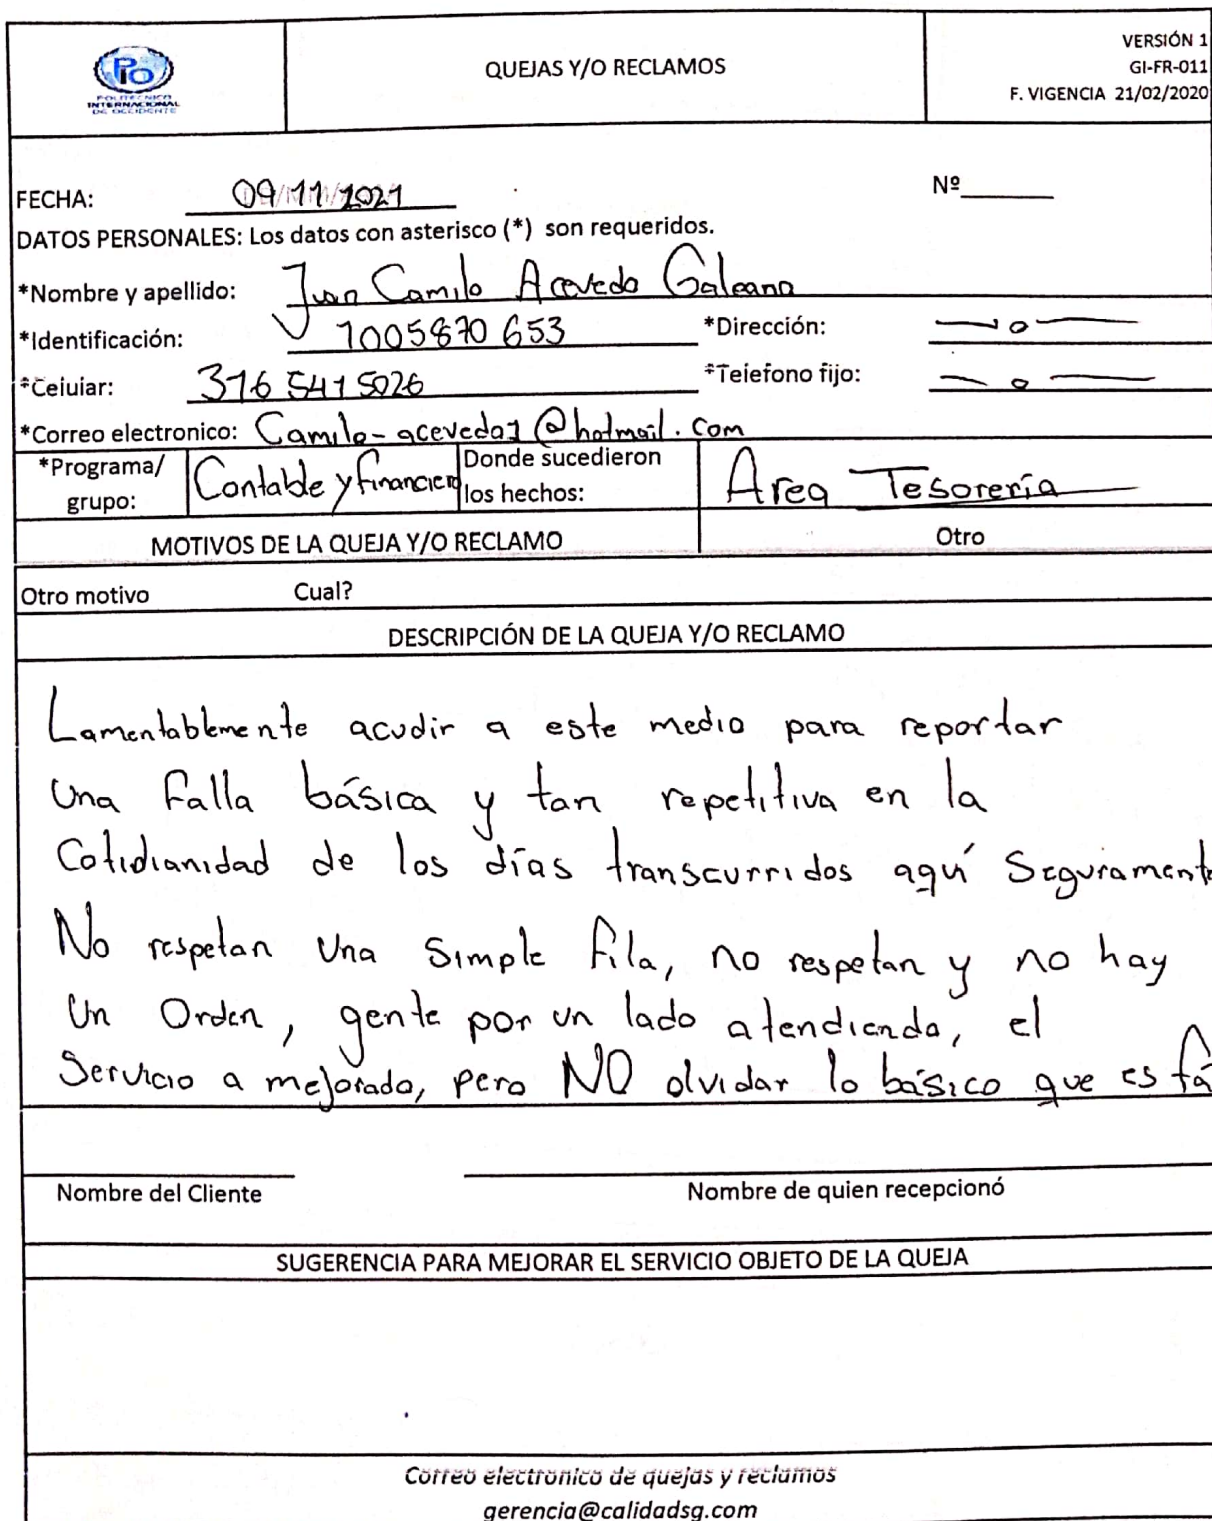 PIO
POLITECNICO
INTERNACIONAL
DE OCCIDENTE
QUEJAS Y/O RECLAMOS
VERSIÓN 1
GI-FR-011
F. VIGENCIA 21/02/2020
FECHA: 09/11/2021 Nº
DATOS PERSONALES: Los datos con asterisco (*) son requeridos.
*Nombre y apellido: Juan Camilo Acevedo Galeano
*Identificación: 1005870653 *Dirección:
*Celular: 316 5415026 *Telefono fijo:
*Correo electronico: Camilo-acevedo1@hotmail.com
*Programa/ grupo: Contable y financiero Donde sucedieron los hechos: Area Tesorería
MOTIVOS DE LA QUEJA Y/O RECLAMO Otro
Otro motivo Cual?
DESCRIPCIÓN DE LA QUEJA Y/O RECLAMO
Lamentablemente acudir a este medio para reportar
Una falla básica y tan repetitiva en la
Cotidianidad de los días transcurridos aquí Seguramente
No respetan Una Simple fila, no respetan y no hay
Un Orden, gente por un lado atendiendo, el
Servicio a mejorado, pero NO olvidar lo básico que es
Nombre del Cliente Nombre de quien recepcionó
SUGERENCIA PARA MEJORAR EL SERVICIO OBJETO DE LA QUEJA
Correo electronico de quejas y reclamos
gerencia@calidadsg.com